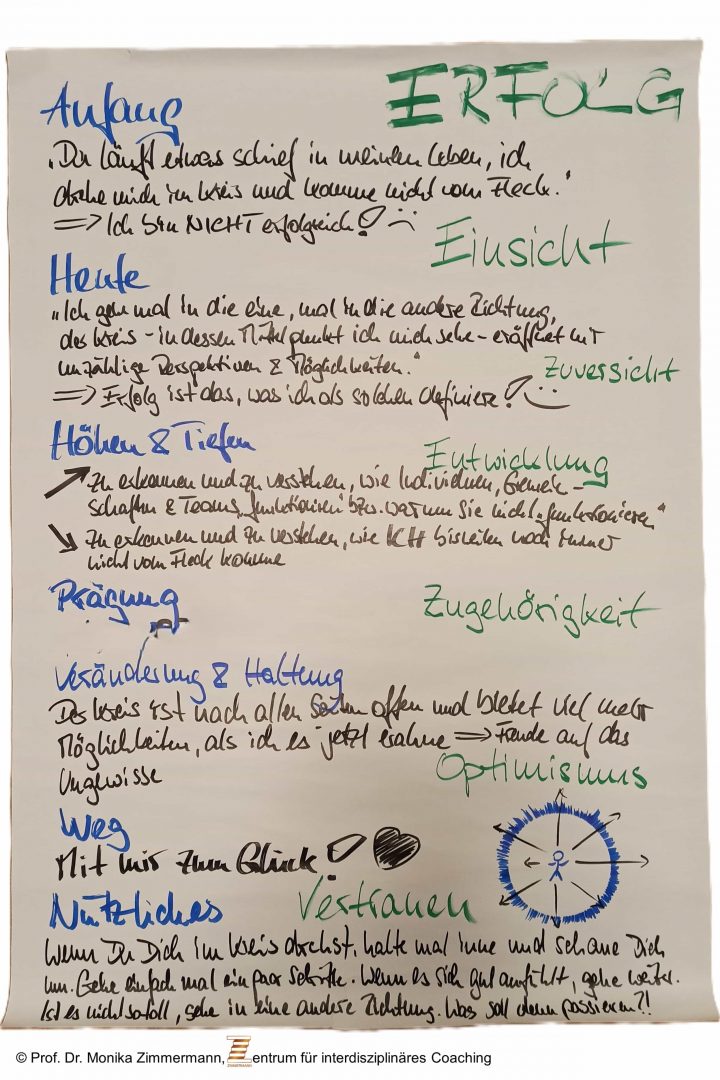 ERFOLG
Anfang
„Da läuft etwas schief in meinem Leben, ich
drehe mich im Kreis und komme nicht vom Fleck."
=> Ich bin NICHT erfolgreich!
Einsicht
Heute
„Ich gehe mal in die eine, mal in die andere Richtung,
der Kreis - in dessen Mittelpunkt ich mich sehe - eröffnet mir
unzählige Perspektiven & Möglichkeiten."
Zuversicht
=> Erfolg ist das, was ich als solchen definiere!
Höhen & Tiefen
Entwicklung
Zu erkennen und zu verstehen, wie Individuen, Gemein-
schaften & Teams „funktionieren" bzw. warum sie nicht „funktionieren"
Zu erkennen und zu verstehen, wie ICH bisweilen noch immer
nicht vom Fleck komme
Prägung
Zugehörigkeit
Veränderung & Haltung
Der Kreis ist nach allen Seiten offen und bietet viel mehr
Möglichkeiten, als ich es jetzt erahne => Freude auf das
Ungewisse
Optimismus
Weg
Mit mir zum Glück!
Nützliches
Vertrauen
Wenn Du Dich im Kreis drehst, halte mal inne und schaue Dich
um. Gehe einfach mal ein paar Schritte. Wenn es sich gut anfühlt, gehe weiter.
Ist es nicht so toll, gehe in eine andere Richtung. Was soll denn passieren?!
© Prof. Dr. Monika Zimmermann, Zentrum für interdisziplinäres Coaching
ZIMMERMANN